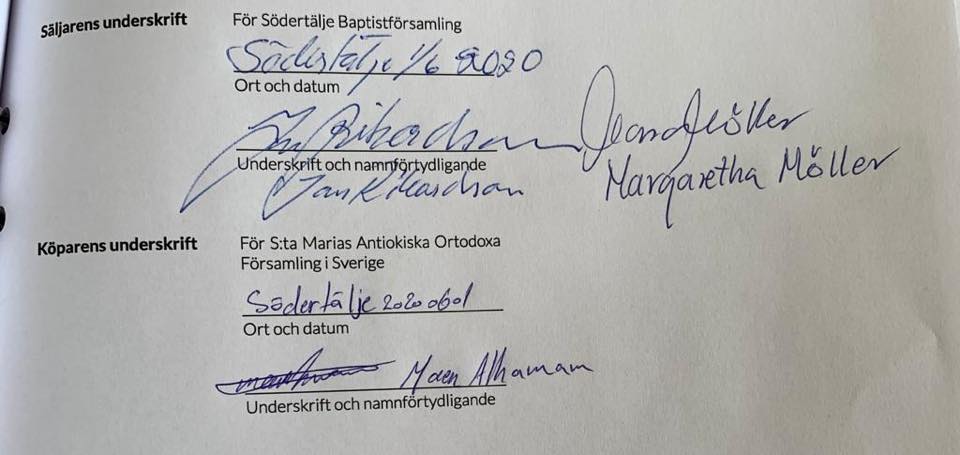 Säljarens underskrift
För Södertälje Baptistförsamling
Södertälje 1/6 2020
Ort och datum
Underskrift och namnförtydligande
Jan Rikardson
Margaretha Möller
Köparens underskrift
För S:ta Marias Antiokiska Ortodoxa
Församling i Sverige
Södertälje 2020 0601
Ort och datum
Maen Alhamam
Underskrift och namnförtydligande